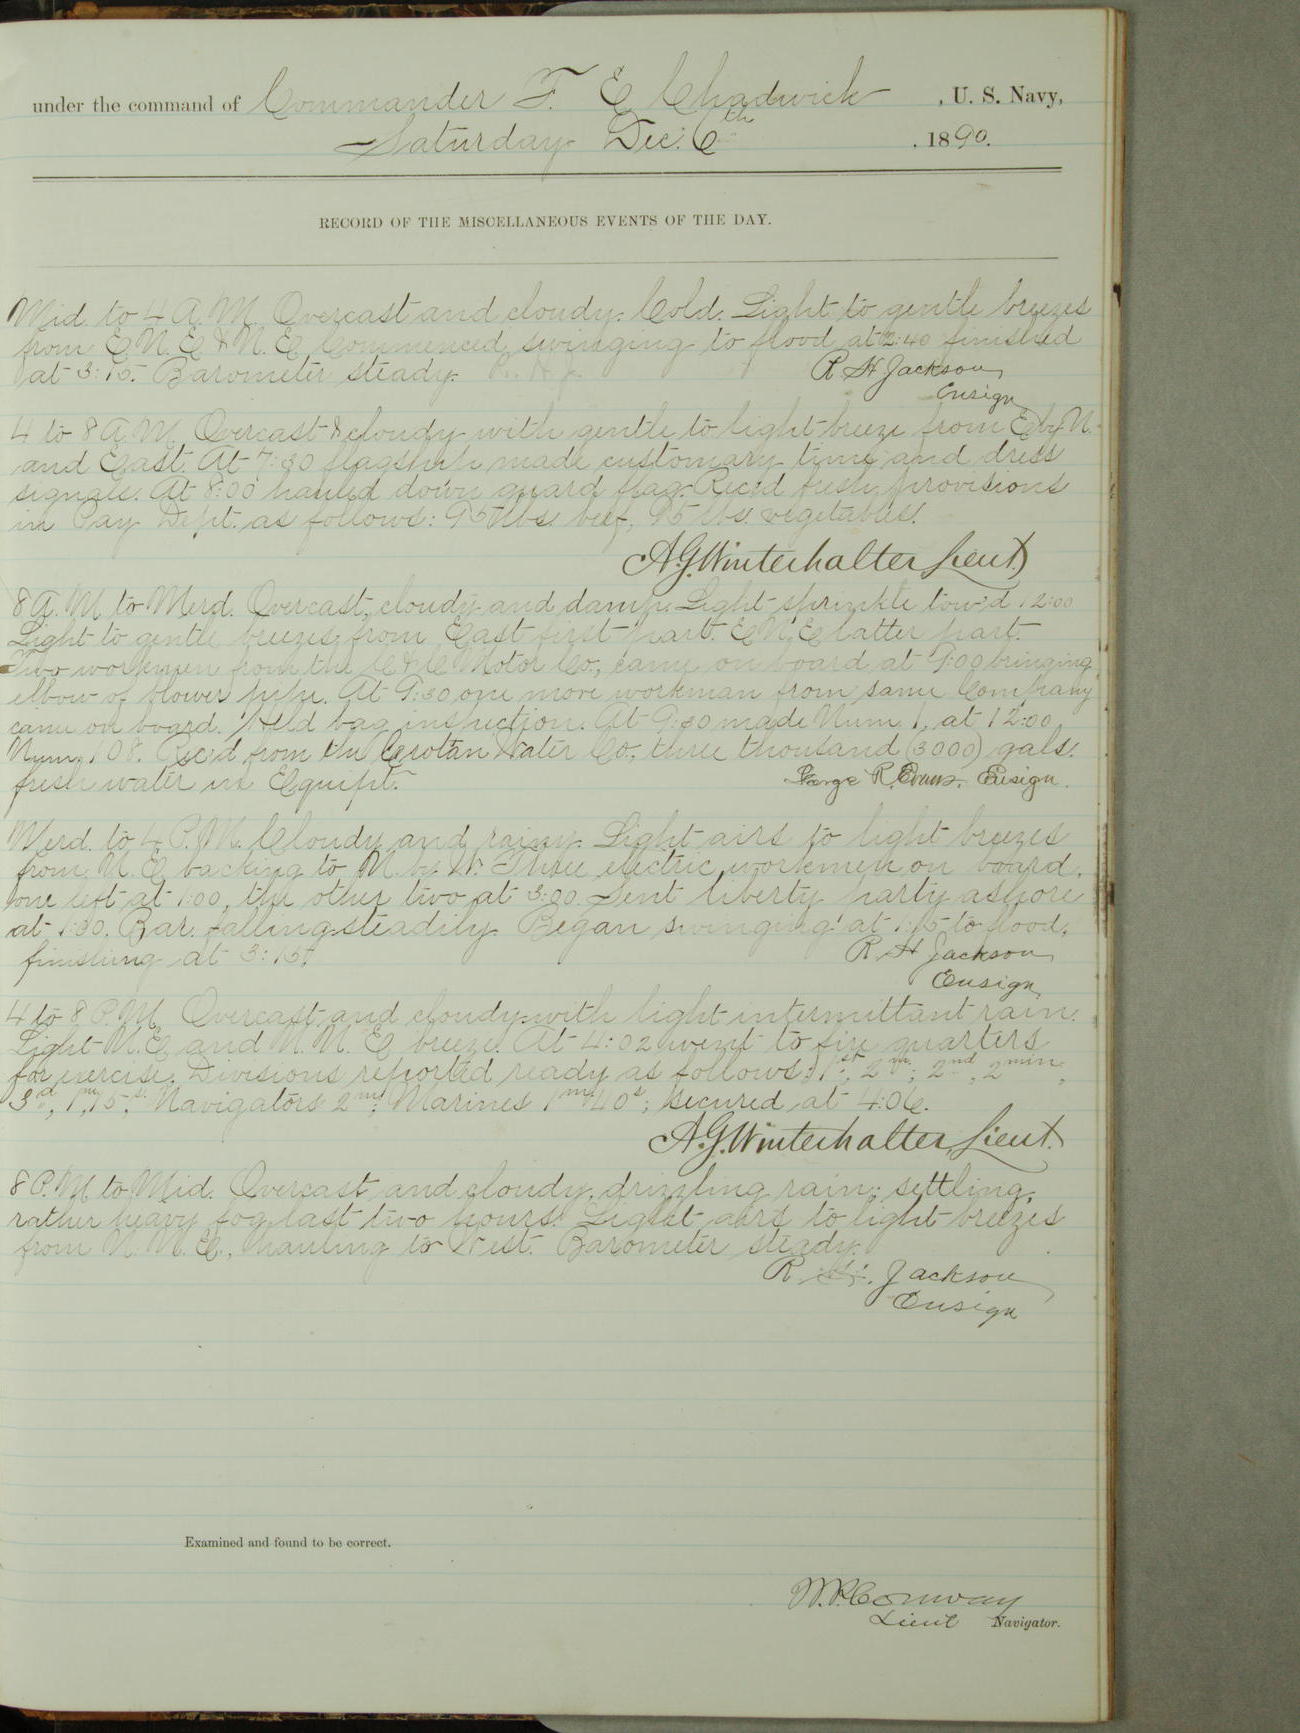 under the command of Commander F. E. Chadwick , U. S. Navy,
Saturday Dec. 6th , 1890.
RECORD OF THE MISCELLANEOUS EVENTS OF THE DAY.
Mid. to 4 A.M. Overcast and cloudy. Cold. Light to gentle breezes
from E.N.E. & N.E. Commenced swinging to flood at 2:40 finished
at 3:15. Barometer steady.
R. H. Jackson
Ensign
4 to 8 A.M. Overcast & cloudy with gentle to light breeze from E by N.
and East. At 7:30 flagship made customary time and dress
signals. At 8:00 hauled down guard flag. Rec'd fresh provisions
in Pay Dept. as follows: 95 lbs. beef, 95 lbs. vegetables.
A.G. Winterhalter, Lieut.
8 A.M. to Merd. Overcast, cloudy and damp. Light sprinkle tow'd 12:00
Light to gentle breezes from East first part. E.N.E. latter part.
Two workmen from the C & C Motor Co, came on board at 9:00 bringing
elbow of blower pipe. At 9:30 one more workman from same Company
came on board. Held bag inspection. At 9:30 made Num 1, at 12:00
Num. 108. Rec'd from the Crotan Water Co., three thousand (3000) gals.
fresh water in Equipt.
George R. Evans. Ensign.
Merd. to 4 P.M. Cloudy and rainy. Light airs to light breezes
from N.E. backing to N. by W. Three electric workmen on board,
one left at 1:00, the other two at 3:30. Sent liberty party ashore
at 1:30. Bar. falling steadily. Began swinging at 1:15 to flood,
finishing at 3:15.
R. H. Jackson
Ensign
4 to 8 P.M. Overcast and cloudy with light intermittant rain.
Light N.E. and N.N.E. breeze. At 4:02 went to fire quarters
for exercise. Divisions reported ready as follows: 1st, 2m; 2nd, 2min;
3d, 1m, 15s. Navigators 2m; Marines 1m 40s; secured at 4:06.
A.G. Winterhalter, Lieut.
8 P.M. to Mid. Overcast and cloudy, drizzling rain; settling,
rather heavy fog last two hours. Light airs to light breezes
from N.N.E., hauling to West. Barometer steady.
R. H. Jackson
Ensign
Examined and found to be correct.
W.P. Conway
Lieut Navigator.